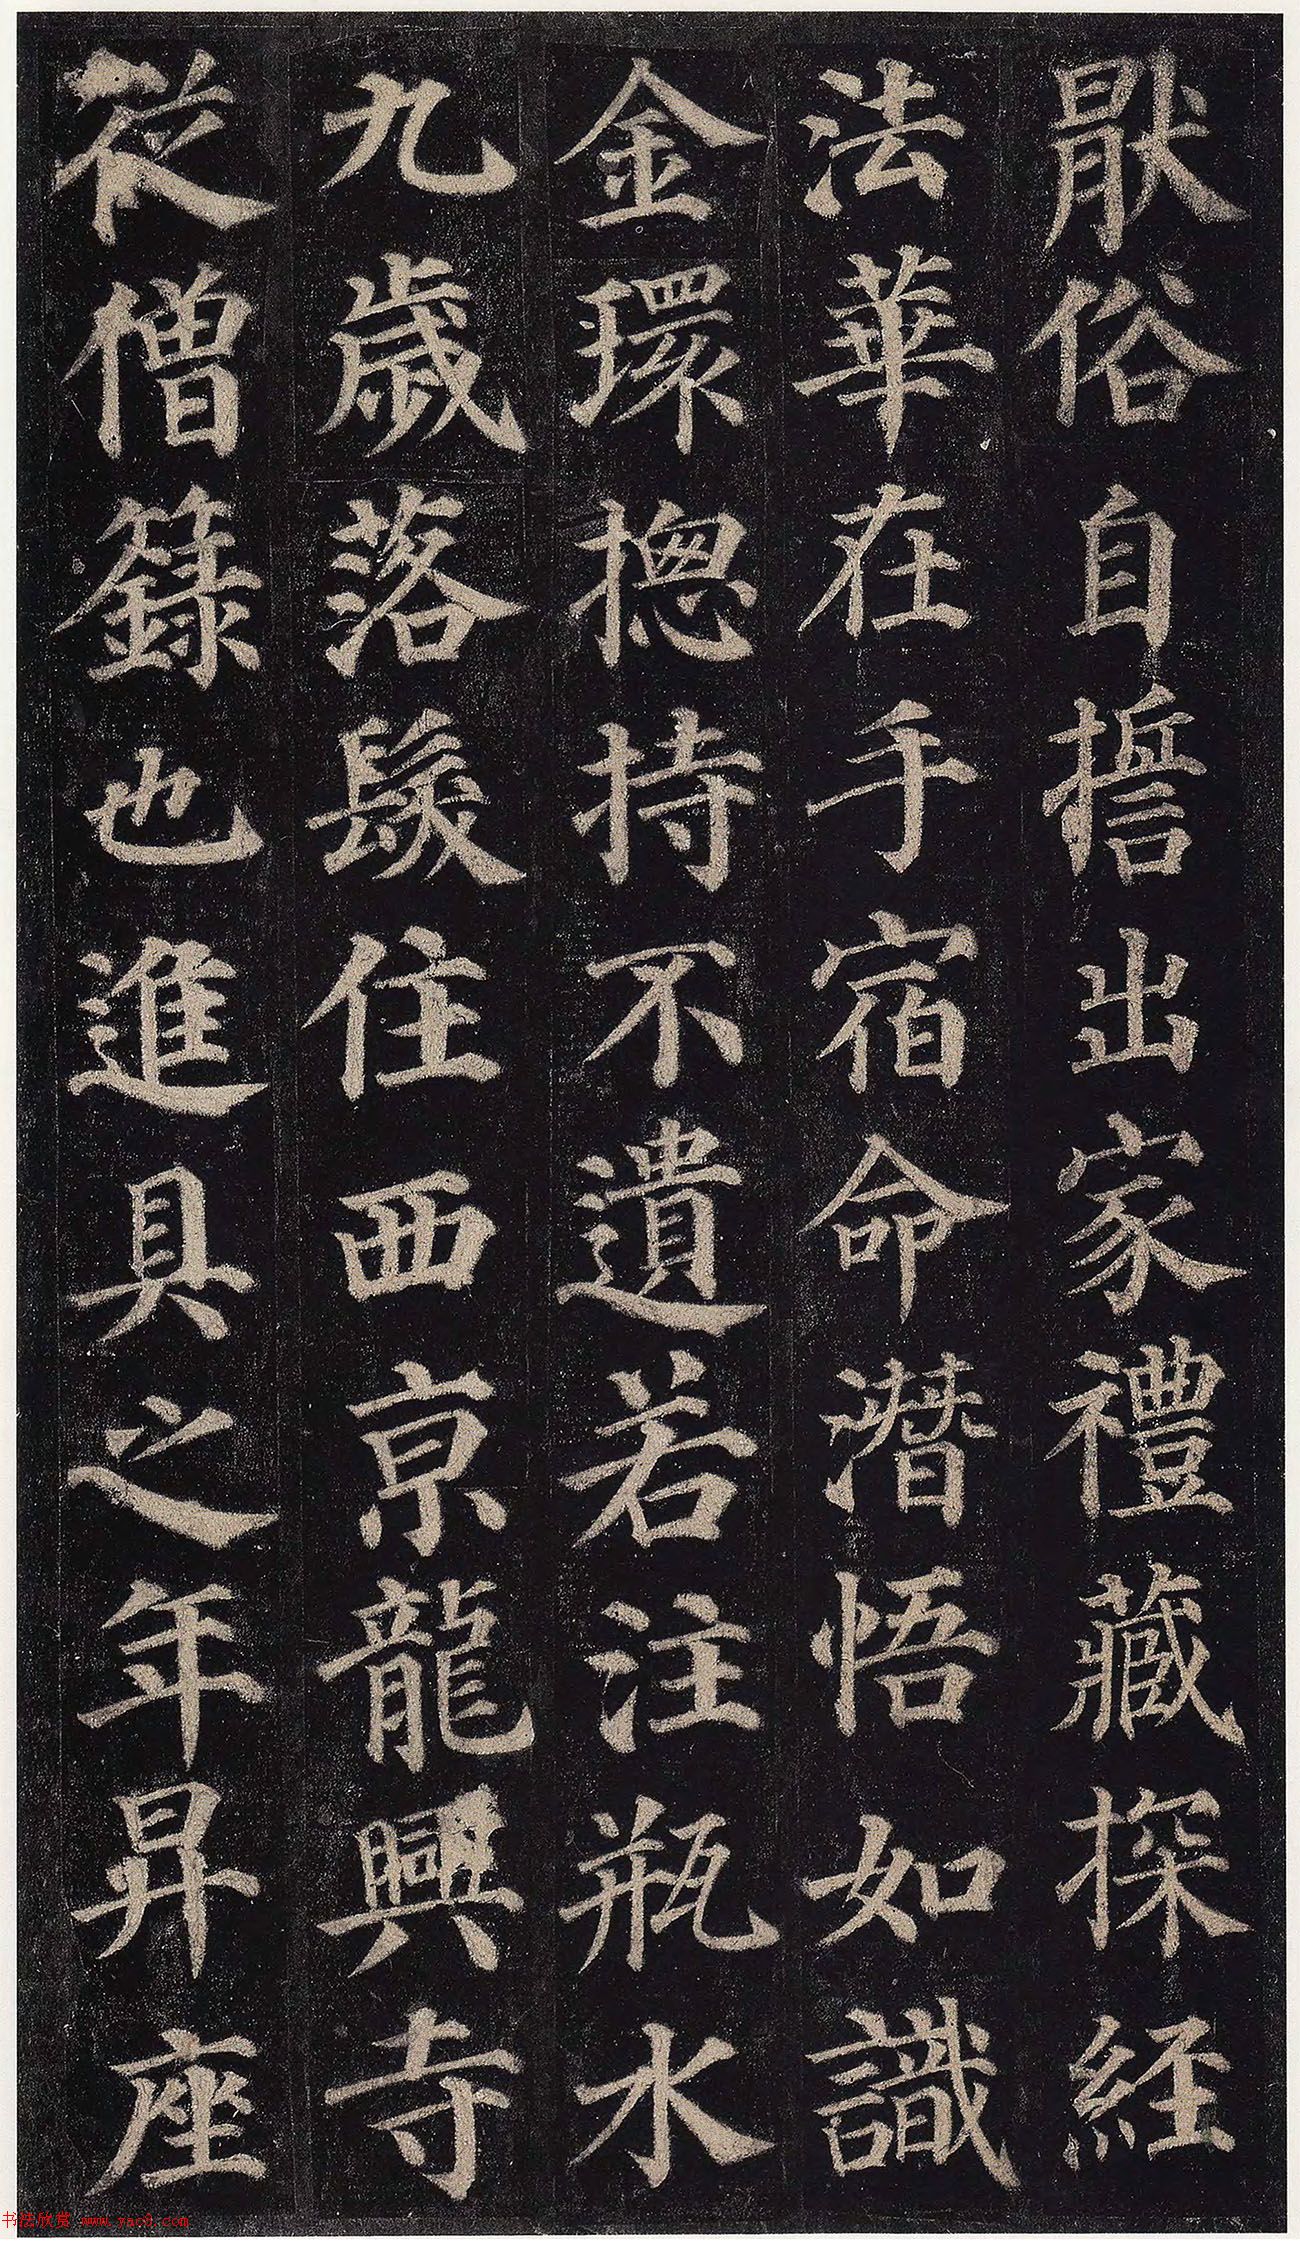 猒俗自搢出家禮藏探経
法華在手宿命潛悟如識
金環揔持不遺若注瓶水
九歲落髮住西京龍興寺
從僧籙也進具之年昇座
书法欣赏 www.yac8.com